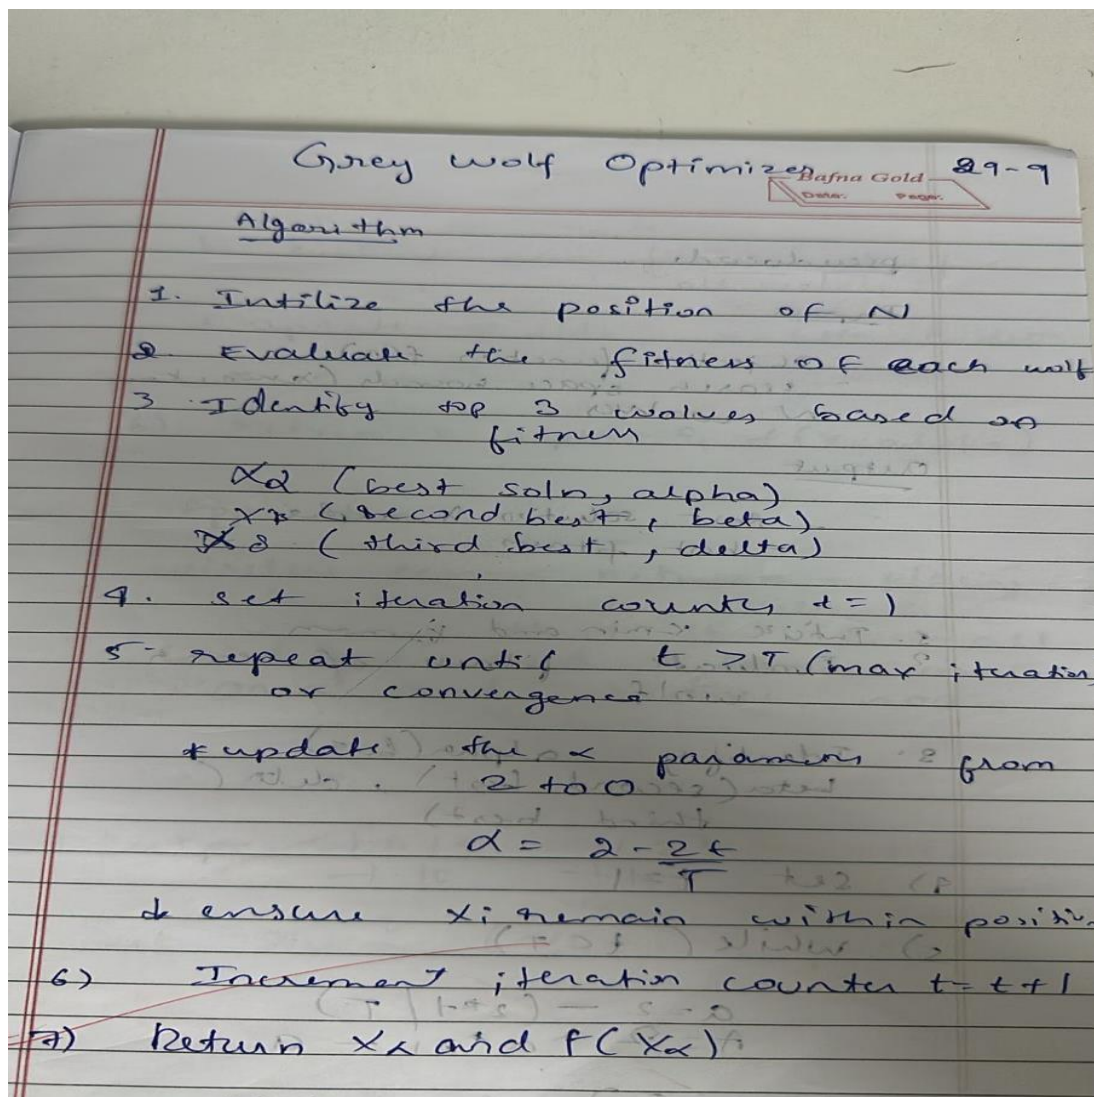 Grey Wolf Optimizer 29-9
Bafna Gold
Date: Page:
Algorithm
1. Intilize the position of N
2. Evaluate the fitness of each wolf
3 Identify top 3 wolves based on
fitness
Xα (best soln, alpha)
(second best, beta)
Xδ (third best, delta)
4. set iteration counter t=1
5- repeat until t > T (max iteration
or convergence
* update the α parameters from
2 to 0
α = 2 - 2t/T
ensure Xi remain within
6) Increment iteration counter t=t+1
7) Return Xα and f(Xα)